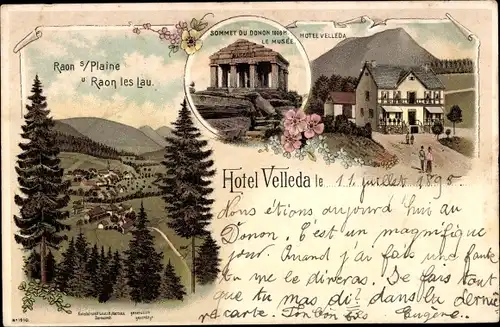 SOMMET DU DONON 1008M
LE MUSÉE
HOTEL VELLEDA
Raon s/Plaine
u Raon les Lau.
Hotel Velleda le 11 juillet 1895
Nous étions aujourd'hui au
Donon. C'est un magnifique
jour. Quand j'ai fais une faute
tu me le diras. Je fais tant
que tu mas dit dans la derniè
re carte. Ton
Eugène